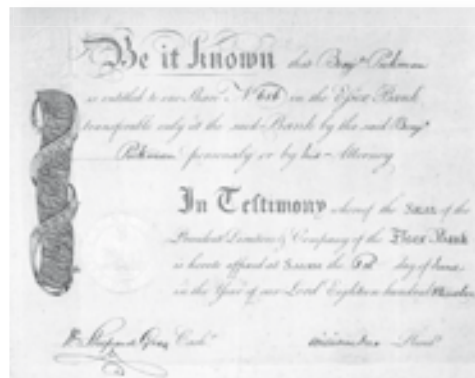 Be it known that Benjn. Pickman
is entitled to one Share No. 616 in the Essex Bank
transferable only at the said Bank by the said Benjn.
Pickman personally or by his Attorney
In Testimony whereof the Seal of the
President Directors & Company of the Essex Bank
is hereto affixed at Salem the day of June
in the Year of our Lord Eighteen hundred
Wm. Shepard Gray Cashr.